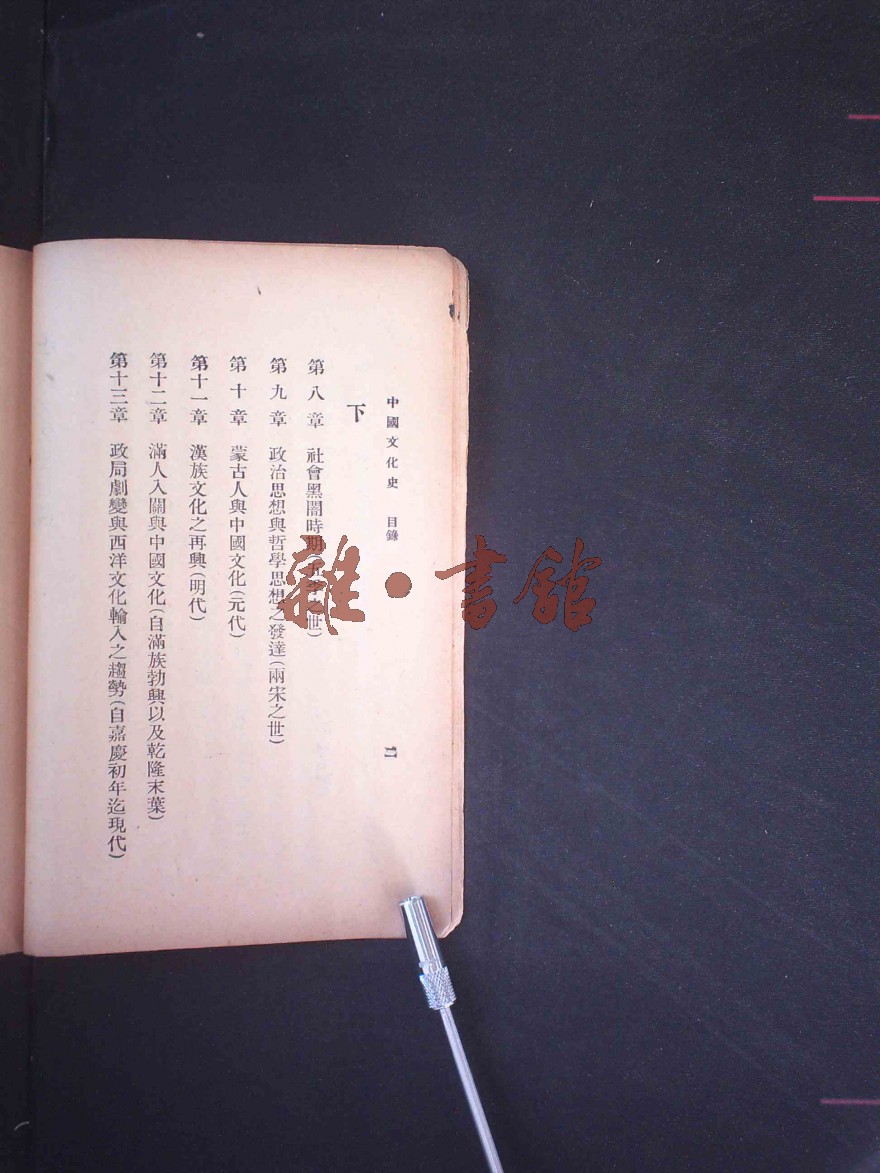 中國文化史 目錄 二
下
第八章 社會黑闇時期(五季之世)
第九章 政治思想與哲學思想之發達(兩宋之世)
第十章 蒙古人與中國文化(元代)
第十一章 漢族文化之再興(明代)
第十二章 滿人入關與中國文化(自滿族勃興以及乾隆末葉)
第十三章 政局劇變與西洋文化輸入之趨勢(自嘉慶初年迄現代)
雜·書館